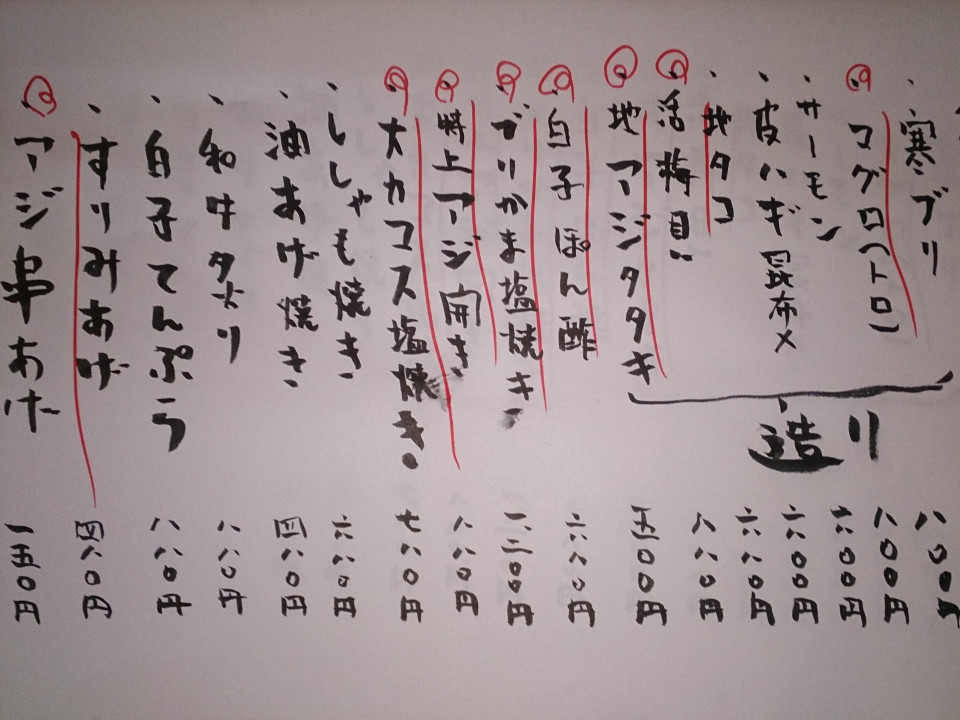 寒ブリ 八〇〇円
マグロ(トロ) 八〇〇円
サーモン 六〇〇円
皮ハギ昆布〆 六〇〇円
地タコ 六八〇円
活梅貝 八八〇円
地アジタタキ 五〇〇円
造り
白子ぽん酢 六八〇円
ブリかま塩焼き 一、三〇〇円
特上アジ開き 八八〇円
大カマス塩焼き 七八〇円
ししゃも焼き 六八〇円
油あげ焼き 四八〇円
和牛 八八〇円
白子てんぷら 八八〇円
すりみあげ 四八〇円
アジ串あげ 一五〇円